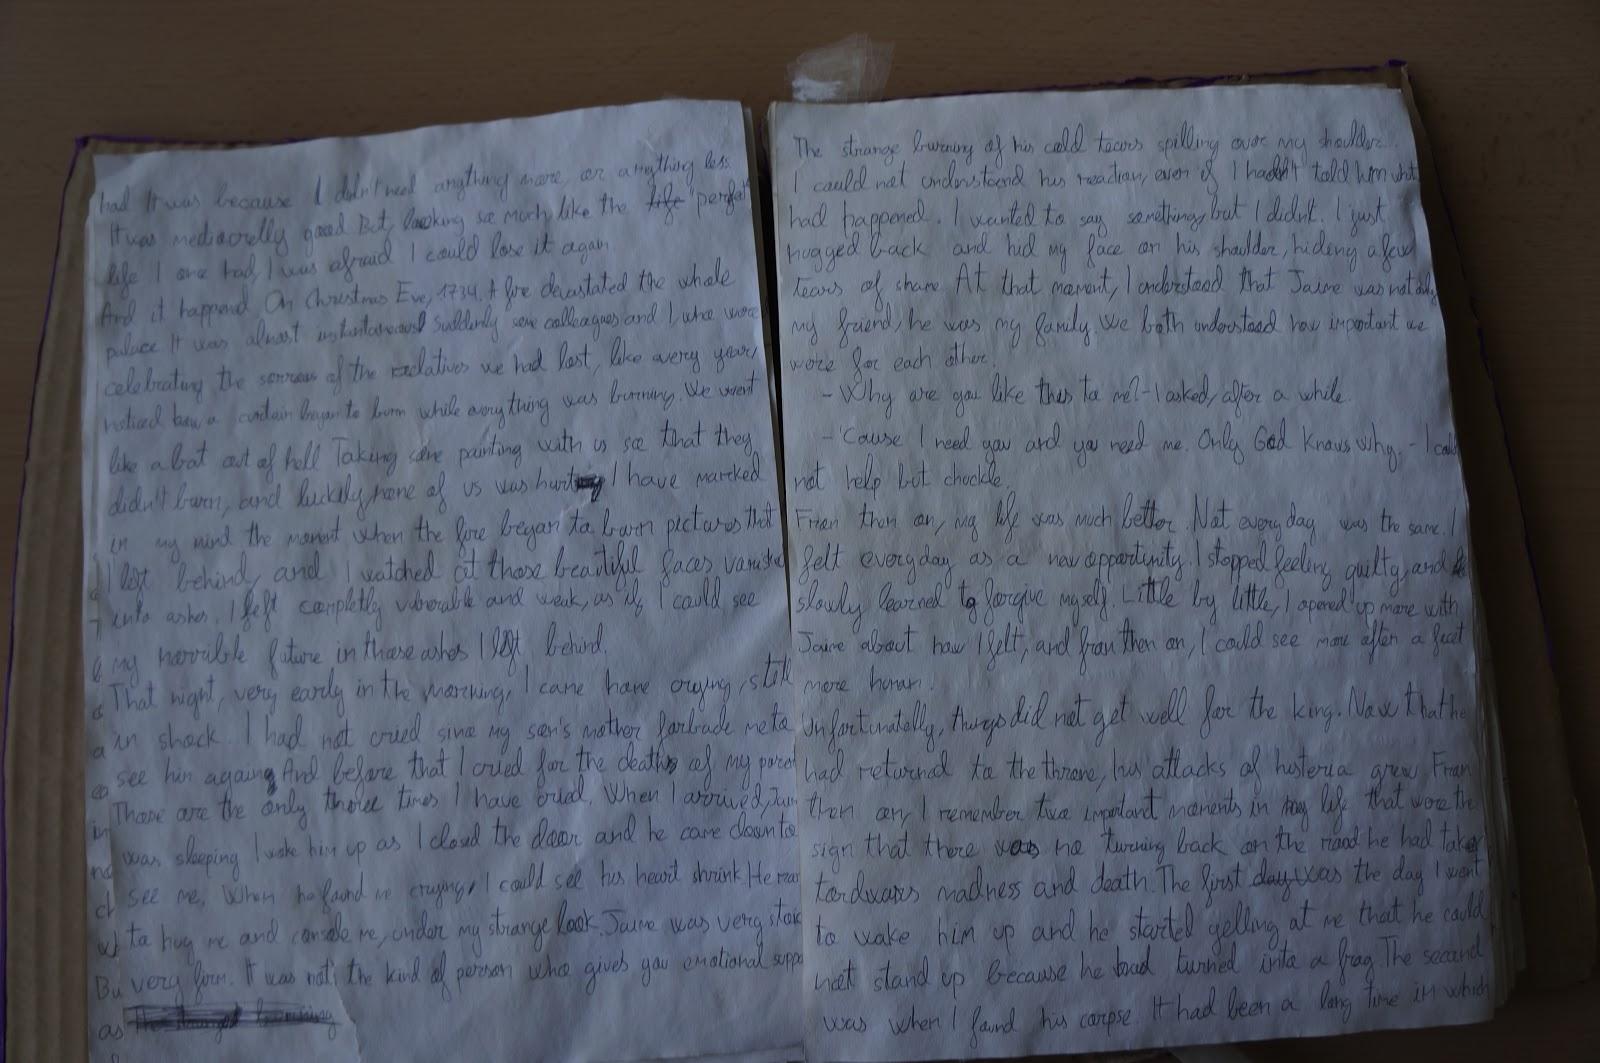 had It was because I didn't need anything more, or anything less.
It was mediocrelly good But, looking so much like the life "perfect"
life I one had, I was afraid I could lose it again.
And it happend. On Christmas Eve, 1734. A fire devastated the whole
palace It was almost instantaneous Suddenly some colleagues and I, who were
celebrating the sorrow of the relatives we had lost, like every year,
noticed how a curtain began to burn while everything was burning. We went
like a bat out of hell Taking some painting with us so that they
didn't burn, and luckily, none of us was hurt I have marcked
in my mind the moment when the fire began to burn pictures that
I left behind, and I watched at those beautiful faces vanished
into ashes. I felt completly vulnerable and weak, as if I could see
my horrible future in those ashes I left behind.
That night, very early in the morning, I came home crying, still
in shock. I had not cried since my son's mother forbade me to
see him again, And before that I cried for the deaths of my parent
Those are the only three times I have cried. When I arrived, Jaim
was sleeping I woke him up as I closed the door and he came down to
see me, When he found me crying, I could see his heart shrink. He ran
to hug me and console me, under my strange look. Jaime was very stoic
very firm. It was not the kind of person who gives you emotional suppo
The strange burning
The strange burning of his cold tears spilling over my shoulder.
I could not understand his reaction, even if I hadn't told him what
had happened. I wanted to say something, but I didn't. I just
hugged back and hid my face on his shoulder, hiding a few
tears of shame At that moment, I understood that Jaime was not only
my friend, he was my family. We both understood how important we
were for each other.
- Why are you like this to me? - I asked, after a while.
- 'Cause I need you and you need me. Only God knows why. - I could
not help but chuckle.
From then on, my life was much better. Not every day was the same. I
felt everyday as a new opportunity. I stopped feeling guilty, and
slowly learned to forgive myself. Little by little, I opened up more with
Jaime about how I felt, and from then on, I could see more often a facet
more human.
Unfortunatelly, things did not get well for the king. Now that he
had returned to the throne, his attacks of histeria grew. From
then on, I remember two important moments in my life that were the
sign that there was no turning back on the road he had taken
tordwars madness and death. The first day was the day I went
to wake him up and he started yelling at me that he could
not stand up because he had turned into a frog. The second
was when I found his corpse. It had been a long time in which